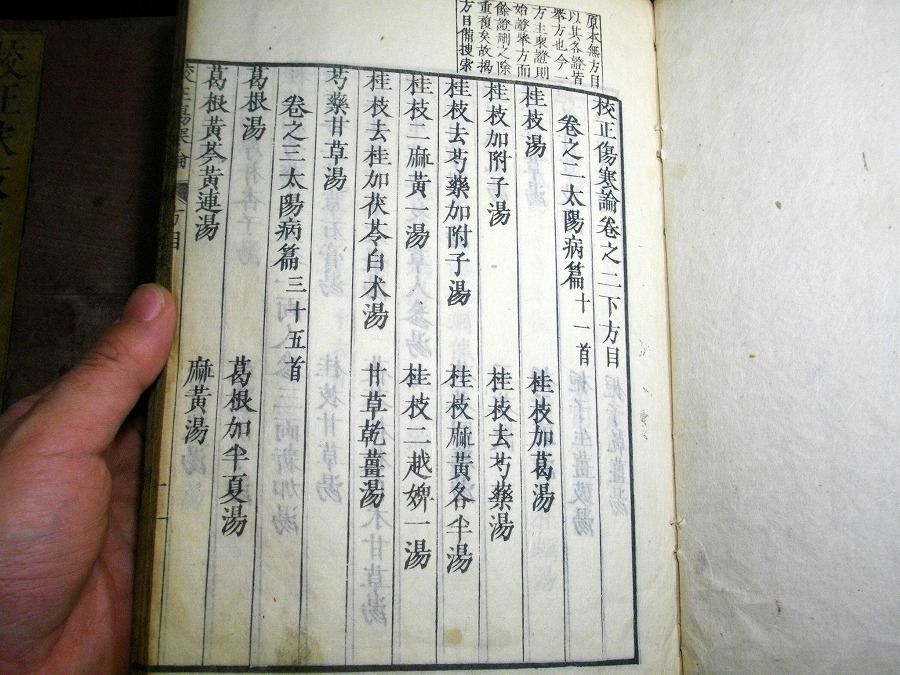 原本無方目
以其各證皆
舉方也今一
方主衆證則
始證舉方而
餘證刪之除
重複矣故揭
方目備搜索
校正傷寒論卷之二下方目
卷之二太陽病篇十一首
桂枝湯 桂枝加葛湯
桂枝加附子湯 桂枝去芍藥湯
桂枝去芍藥加附子湯 桂枝麻黃各半湯
桂枝二麻黃一湯 桂枝二越婢一湯
桂枝去桂加茯苓白朮湯 甘草乾薑湯
芍藥甘草湯
卷之三太陽病篇三十五首
葛根湯 葛根加半夏湯
葛根黃芩黃連湯 麻黃湯
方目
一